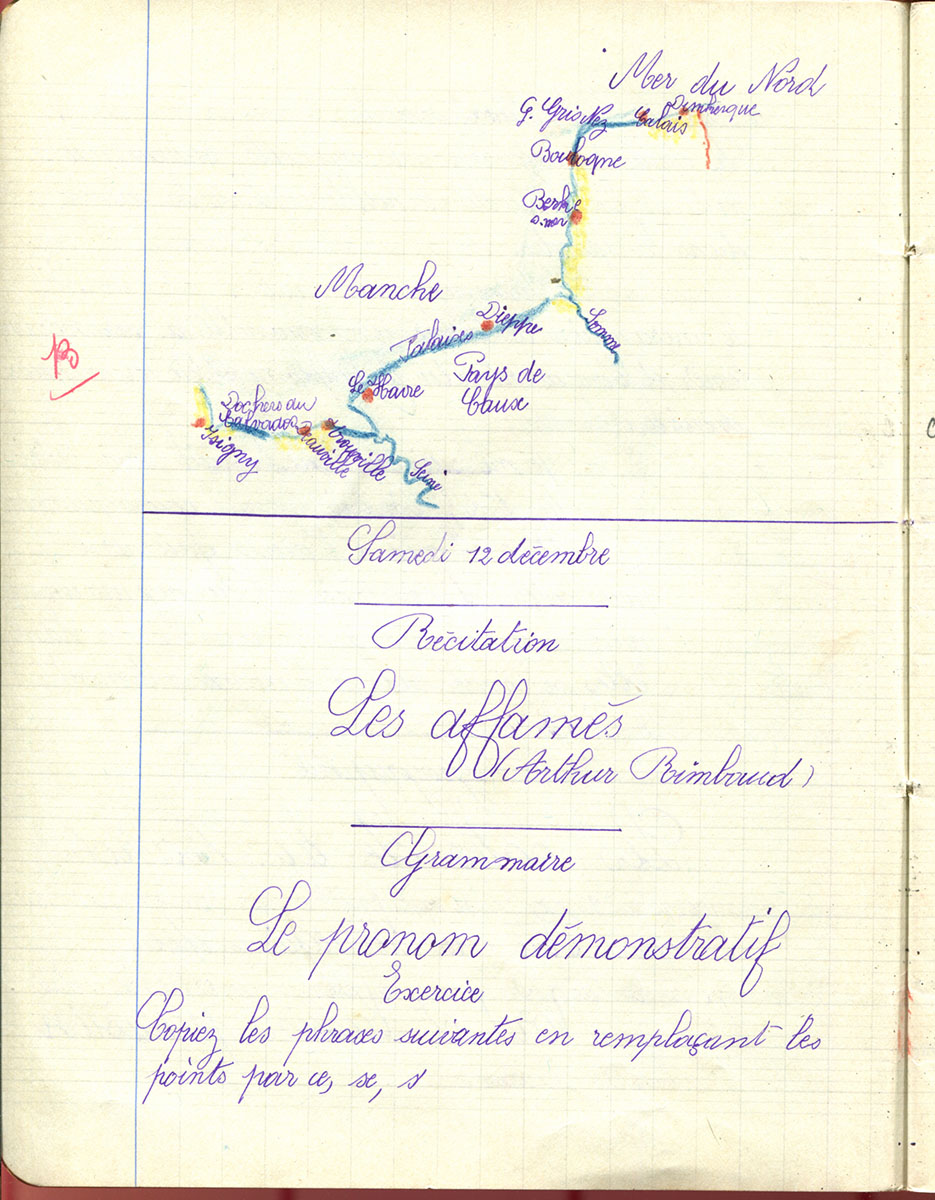 Mer du Nord
G. Gris Nez
Calais
Dunkerque
Boulogne
Berke
s. mer
Manche
Dieppe
Falaises
Somme
Le Havre
Pays de
Caux
B
Rochers du
Calvados
Isigny
Deauville
Trouville
Seine
Samedi 12 décembre
Récitation
Les affamés
(Arthur Rimbaud)
Grammaire
Le pronom démonstratif
Exercice
Copiez les phrases suivantes en remplaçant les
points par ce, se, s